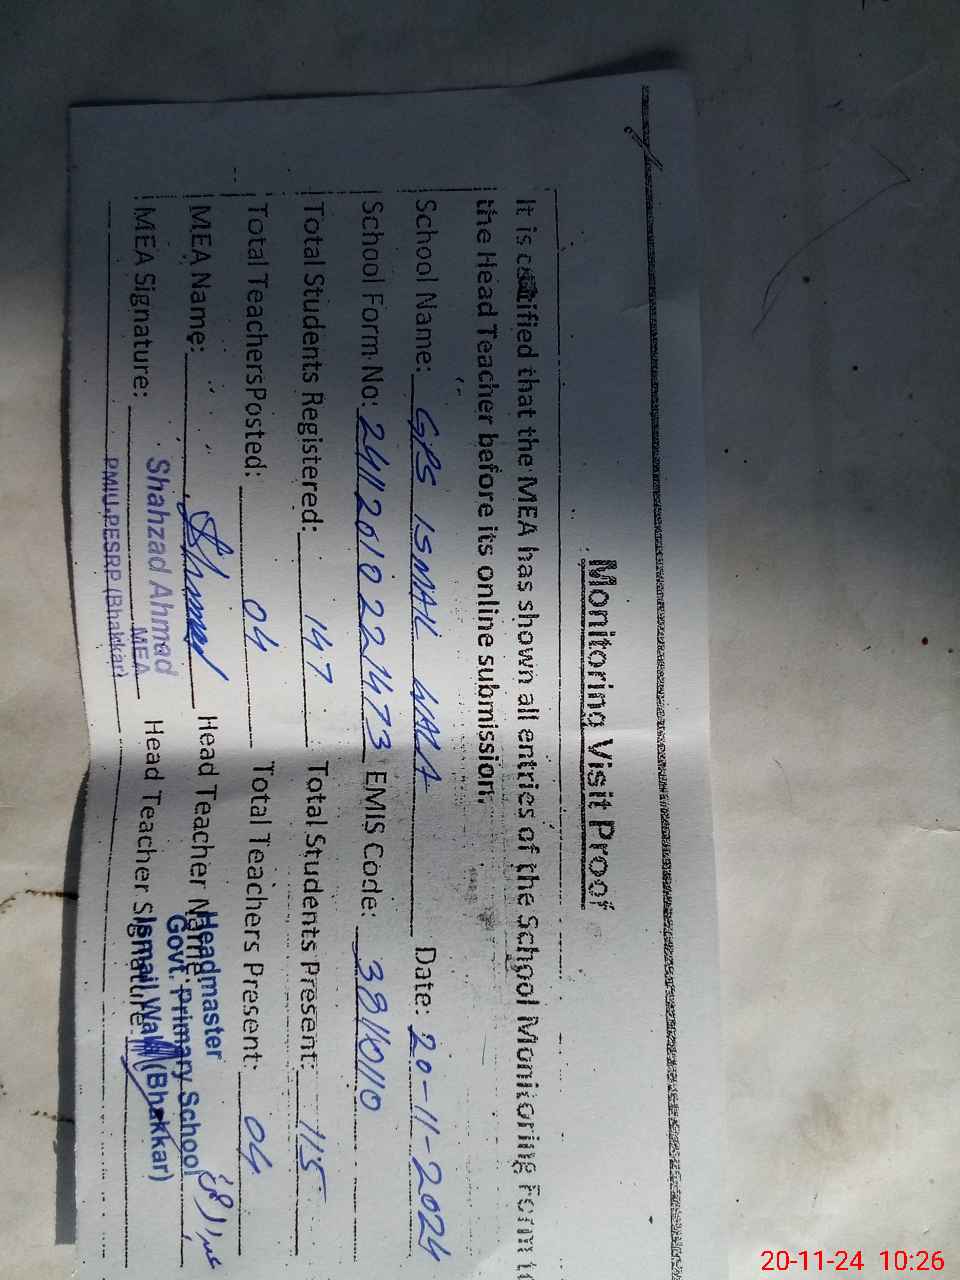 Monitoring Visit Proof
It is certified that the MEA has shown all entries of the School Monitoring Form to
the Head Teacher before its online submission.
School Name: GPS ISMAIL WALA Date: 20-11-2024
School Form No: 24112010221473 EMIS Code: 38110110
Total Students Registered: 147 Total Students Present: 115
Total TeachersPosted: 04 Total Teachers Present: 04
MEA Name: Head Teacher Name:
MEA Signature: Head Teacher Signature:
Shahzad Ahmad
MEA
PMIU-PESRP (Bhakkar)
Headmaster
Govt. Primary School
Ismail Wala (Bhakkar)
20-11-24 10:26